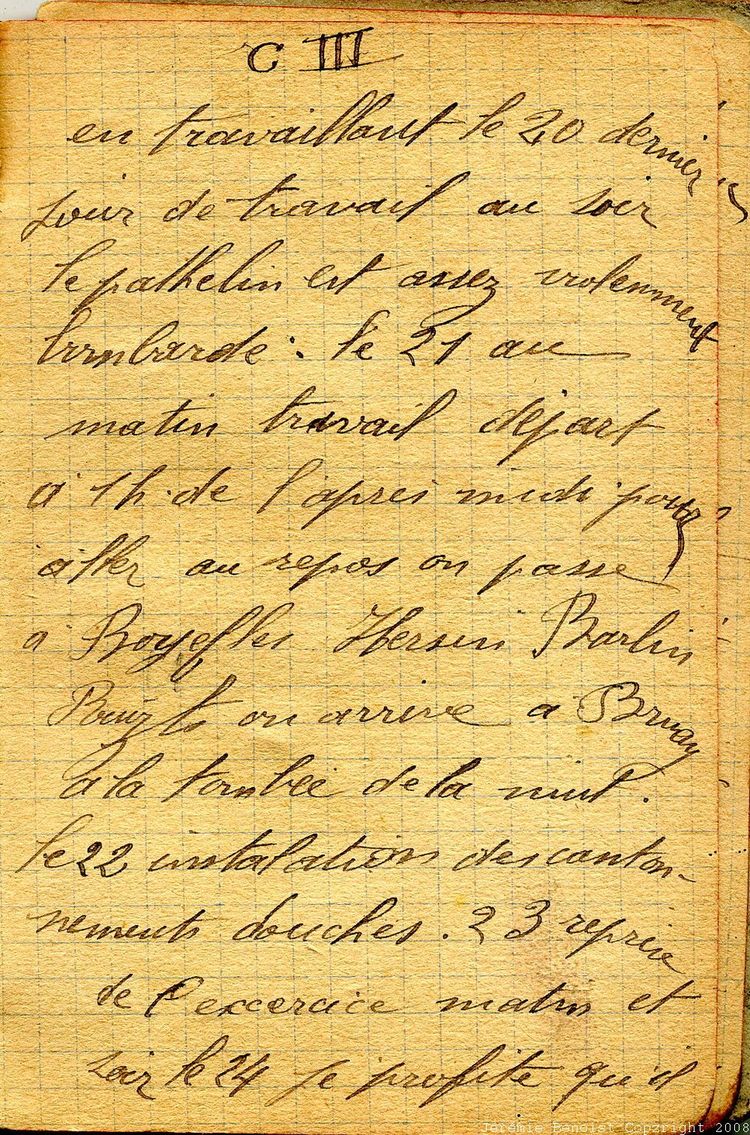 C III
en travaillant le 20 dernier
jour de travail au soir
le pathelin est assez violemment
bombarde. le 21 au
matin travail départ
a 1h. de l'apres midi pour
aller au repos on passe
a Boyeffles Hersin Barlin
on arrive a Bruay
a la tombée de la nuit.
le 22 instalations des canton-
nements douches. 23 reprise
de l'excercice matin et
soir le 24 je profite qu'il
Jérémie Benoist Copyright 2008